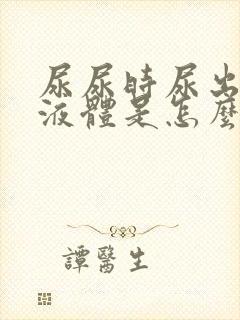 尿尿時尿出
液體是怎麼
譚醫生